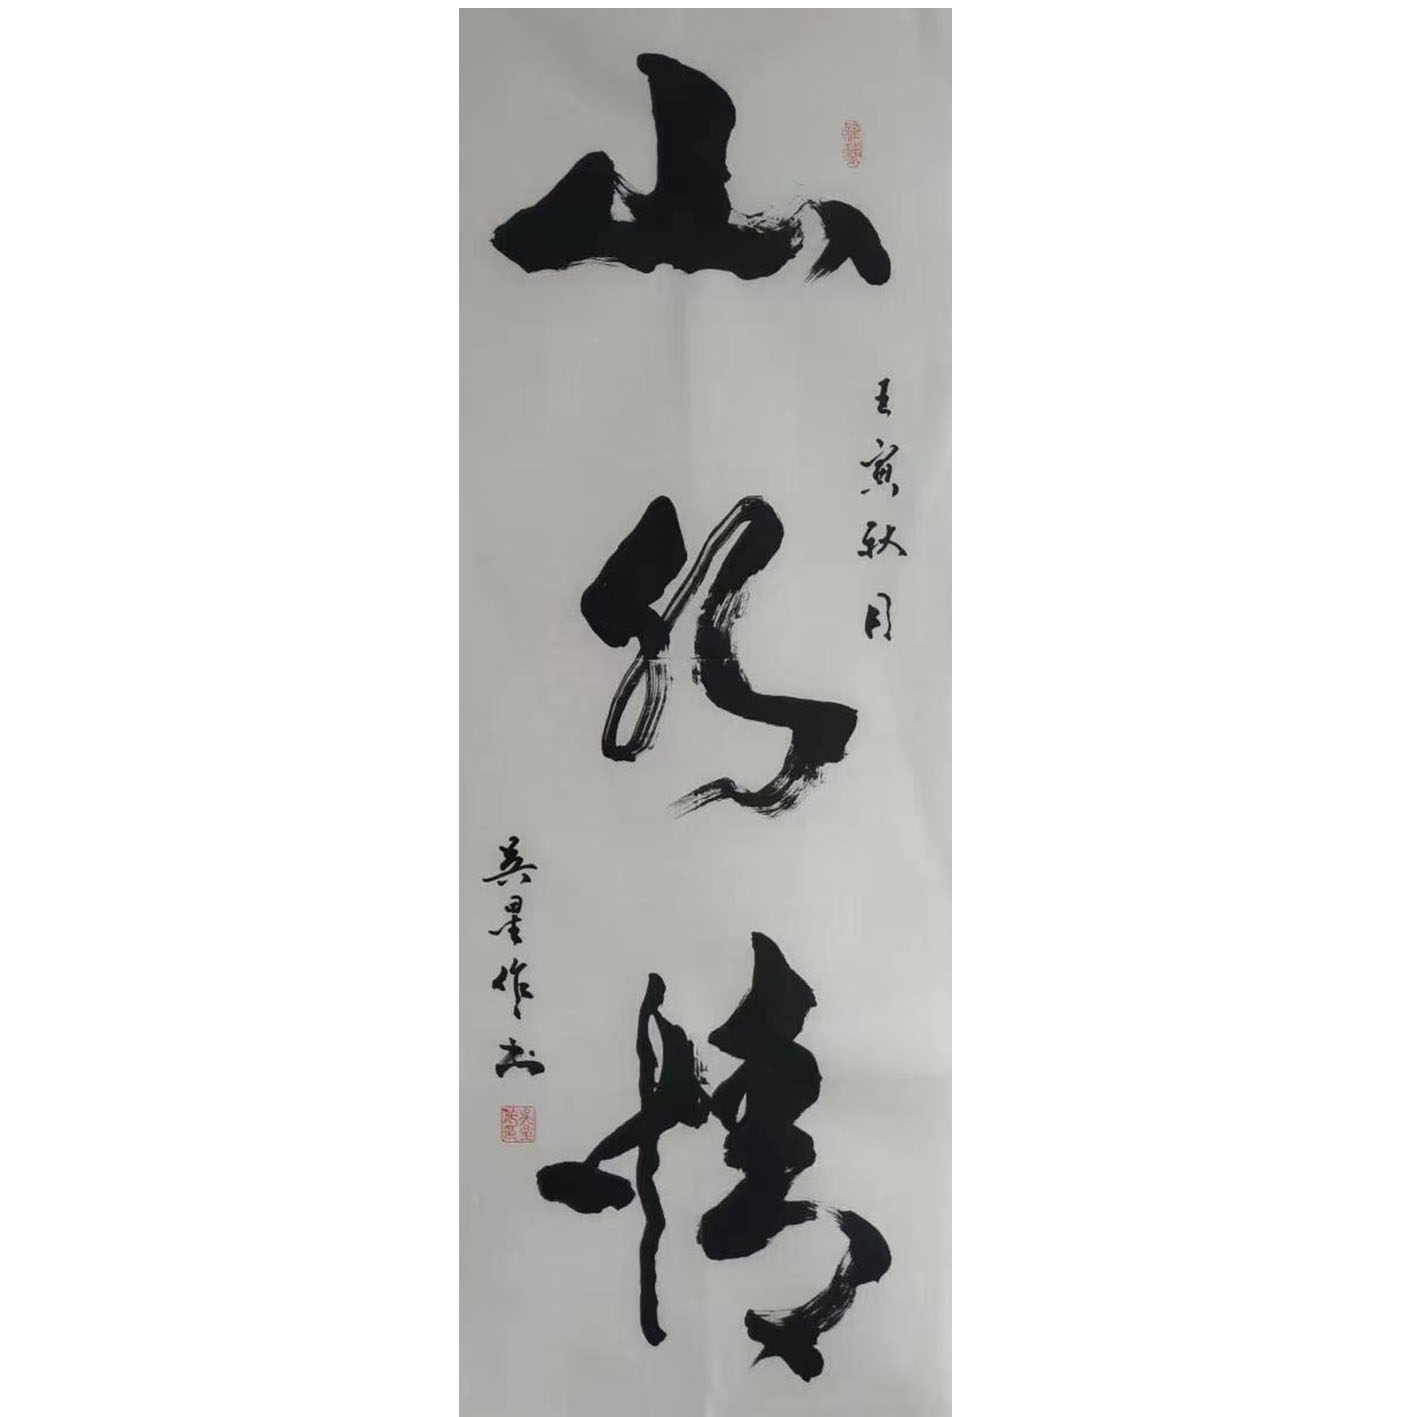 山水情
壬寅秋月
吴星作书